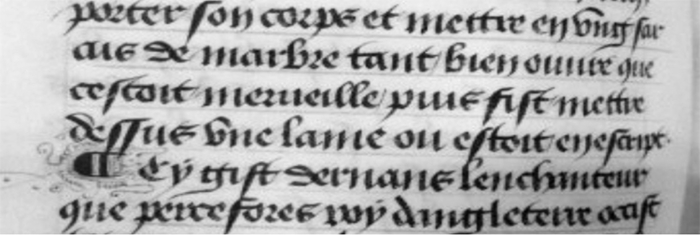 porter son corps et mettre en vng sar
cus de marbre tant bien ouure que
cestoit merueille puis fist mettre
dessus vne lame ou estoit en escript.
¶ Cy gist dernans lenchanteur
que percefores roy dangleterre occist